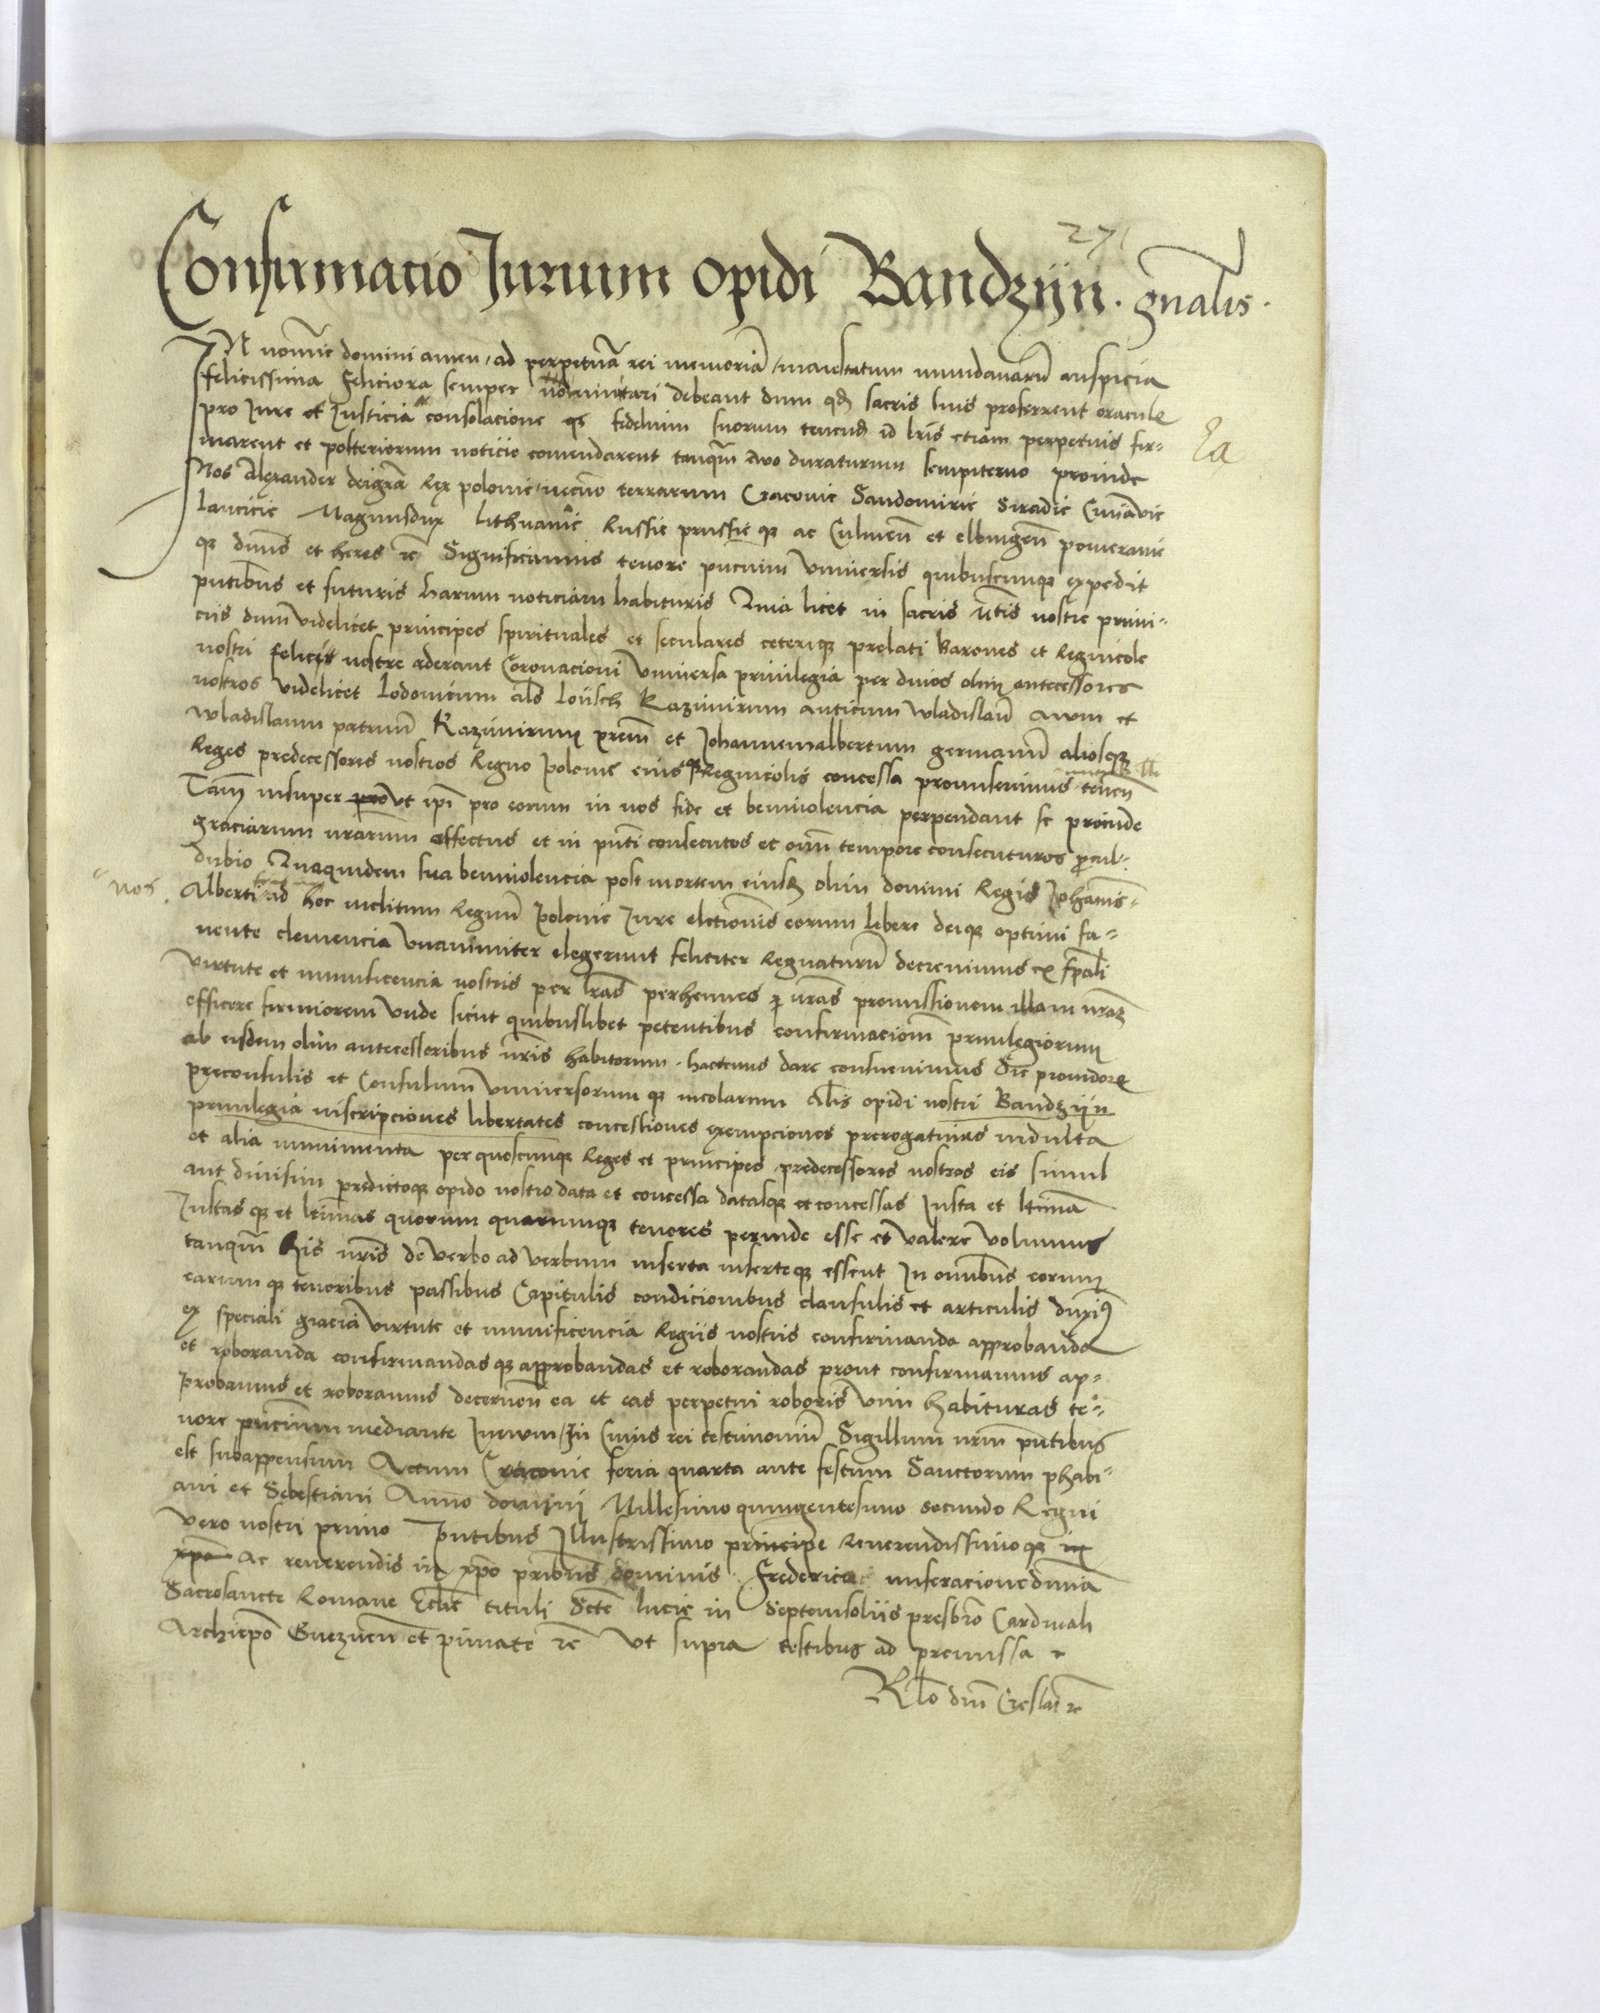 27
Confirmacio Jurium opidi Bandzijn . gnalis .
IN nomine domini amen / ad perpetuā rei memoriā / maiestatum mundanarū auspicia
felicissima feliciora semper nominitari debeant dum qd sacris suis proferrent oracul
pro Jure et Justicia consolacione qz fidelium suorum tenend id lris etiam perpetuis fir-
marent et posteriorum noticie comendarent tanqm Auo duraturum sempiterno proinde
Nos Alexander dei gra Rex polonie necno terrarum Cracouie Sandomirie Siradie Cuiavie
lancicie Magnusdux lithuanie Russie prussie qz ac Culmen et elbingen pomeranie
qz dnus et heres rc Significamus tenore pntium vniuersis quibuscumqz expedit
pntibus et futuris harum noticiam habituris Quia licet in sacris vtis nostre primi-
ciis dum videlicet principes spirituales et seculares ceteriqz prelati Barones et Regnicole
nostri felicis nostre aderant Coronacioni vniuersa priuilegia per diuos olim antecessores
nostros videlicet lodouicum als loisch Kazimirum anticum wladislau auum et
wladislaum patruu Kazimirum prem et Johannemalbertum germanu aliosqz
Reges predecessores nostros Regno polonie eiusqz Regnicolis concessa promiserimus tenen
Tam insuper vt ipi pro eorum in nos fide et beniuolencia perpendant se proinde
graciarum nrarum effectus et in pnti consecutos et omi tempore consecuturos procul-
dubio Quaquidem sua beniuolencia post mortem eiusd olim domini Regis Johanis-
nos . Alberti ad hoc inclitum Regnu polonie Jure elctionis eorum libere deiqz optimi fa-
uente clemencia vnanimiter elegerunt feliciter Regnaturu decreuimus ex spali
virtute et munificencia nostris per lras perhennes nras promissionem illam nram
efficere firmiorem vnde sicut quibuslibet petentibus confirmacionem priuilegiorum
ab eisdem olim antecessoribus nris habitorum . hactenus dare consueuimus Sic prouidor
preconsulis et Consulum vniuersorum qz incolarum Als opidi nostri Bandzijn
priuilegia inscripciones libertates concessiones exempciones prerogatiuas indulta
et alia munimenta per quoscumqz Reges et principes predecessores nostros eis simul
aut diuisim predictoqz opido nostro data et concessa datasqz et concessas Justa et ltima
Justas qz et ltimas quorum quarumqz tenores perinde esse et valere volumus
tanqm his nris de verbo ad verbum inserta inserteqz essent In omnibus eorum
earum qz tenoribus passibus Capitulis condicionibus clausulis et articulis duxim
ex speciali gracia virtute et munificencia Regiis nostris confirmanda approbanda
et roboranda confirmandas qz approbandas et roborandas prout confirmamus ap-
probamus et roboramus decernen ea et eas perpetui roboris vim habituras te-
nore pncium mediante Jnevum / In Cuius rei testimoniu Sigillum nrm pntibus
est subappensum Actum Cracouie feria quarta ante festum Sanctorum phabi-
ani et Sebestiani Anno domini Millesimo quingentesimo secundo Regni
vero nostri primo Pntibus Illustrissimo principe Reuerendissimoqz in
xpo ac reuerendis in xpo pribus dominis Frederico miseracione diuina
Sacrosancte Romane Eclie tituli Scte lucie in Septemsoliis presbro Cardinali
Archiepo Gneznen et primate rc vt supra testibus ad premissa
Rlo dni Creslai rc